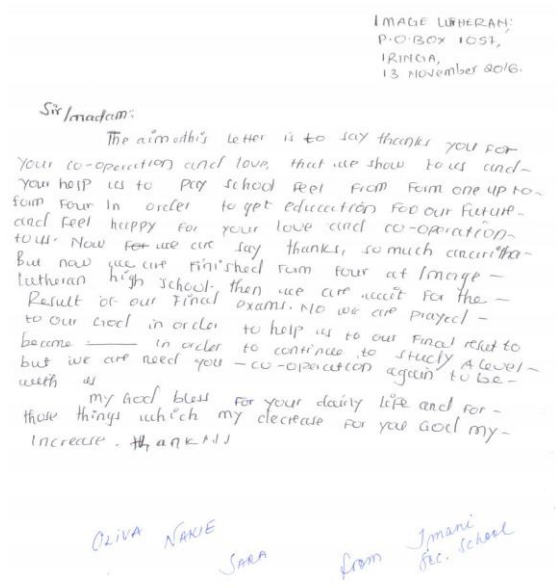 IMAGE LUTHERAN:
P.O.BOX 1057,
IRINGA,
13 November 2016.
Sir/madam:
The aim othis Letter is to say thanks you for
your co-operation and love, that we show to us and-
your help us to pay school feel from form one up to-
form four in order to get education foo our future-
and feel happy for your love and co-operation-
to us. Now for we are say thanks, so much
But now we are finished form four at Image-
Lutheran high school. then we are wait for the-
Result of our Final exams. No we are prayed-
to our God in order to help us to our Final reslut to
become ——— in order to continue to study A level-
but we are need you -co-operation again to be-
with us
my God bless for your dairly life and for-
those things which my decrease for you God my-
increase. thanks
OLIVA NAKIE
SARA from Imani
Sec. School